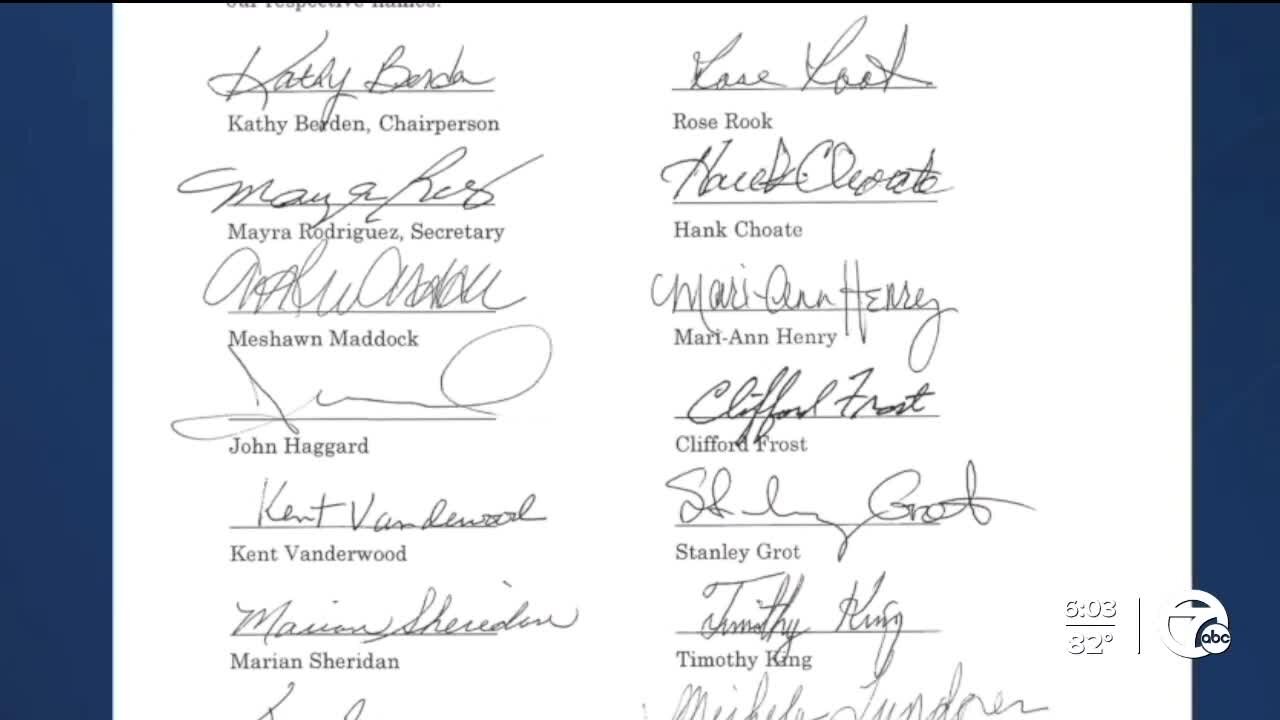 our respective names.
Kathy Berden
Kathy Berden, Chairperson
Mayra Rodriguez, Secretary
Meshawn Maddock
John Haggard
Kent Vanderwood
Kent Vanderwood
Marian Sheridan
Marian Sheridan
Rose Rook
Rose Rook
Hank Choate
Hank Choate
Mari-Ann Henry
Mari-Ann Henry
Clifford Frost
Clifford Frost
Stanley Grot
Timothy King
Timothy King
6:03
82°
7 abc